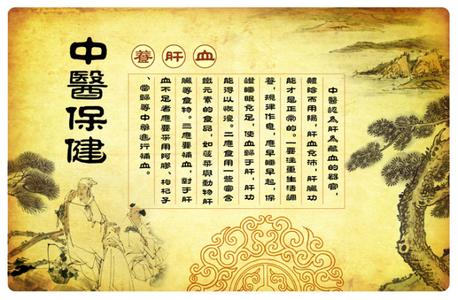 中醫保健
養肝血
中醫認為肝為藏血的器官,
體陰而用陽,肝血充沛,肝臟功
能才是正常的。一要注重生活調
養,規律作息,應早睡早起,保
證睡眠充足,使血歸于肝,肝功
能得以恢復。二應食用一些富含
鐵元素的食品,如菠菜與動物肝
臟等食物。三應要補血,對于肝
血不足者應要采用阿膠、枸杞子
、當歸等中藥進行補血。